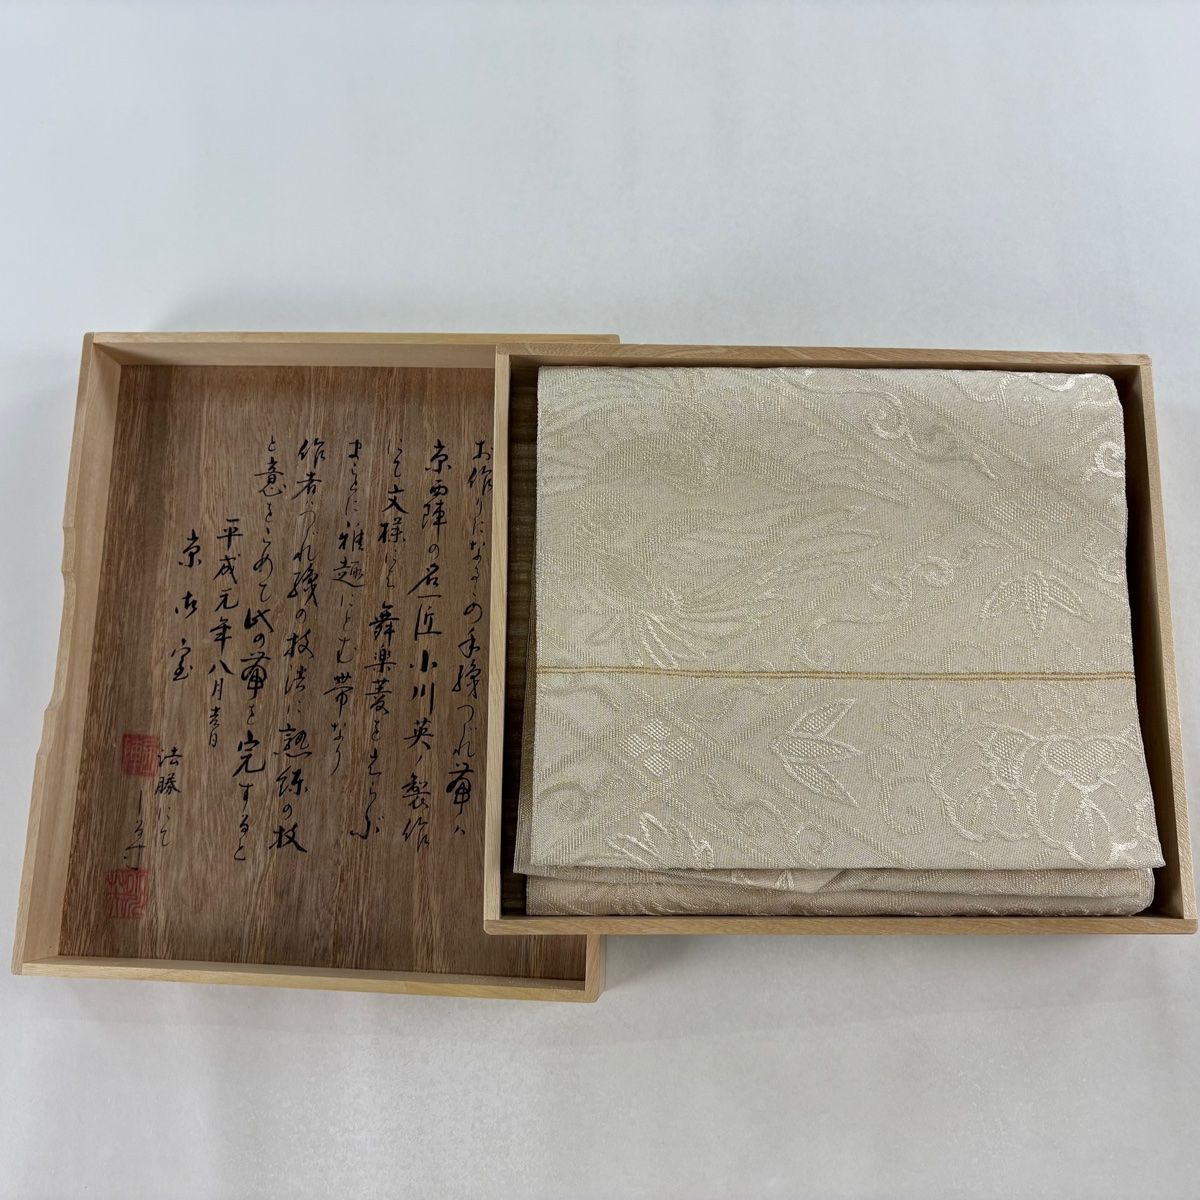 お作りになるこの手織つづれ帯は
京西陣の名匠小川英ノ製作
にて文様にも舞楽菱をえらぶ
まことに雅趣にとむ帯なり
作者はつづれ織の技法に熟練の技
と意をこめて此の帯を完すると
平成元年八月吉日
法勝にて